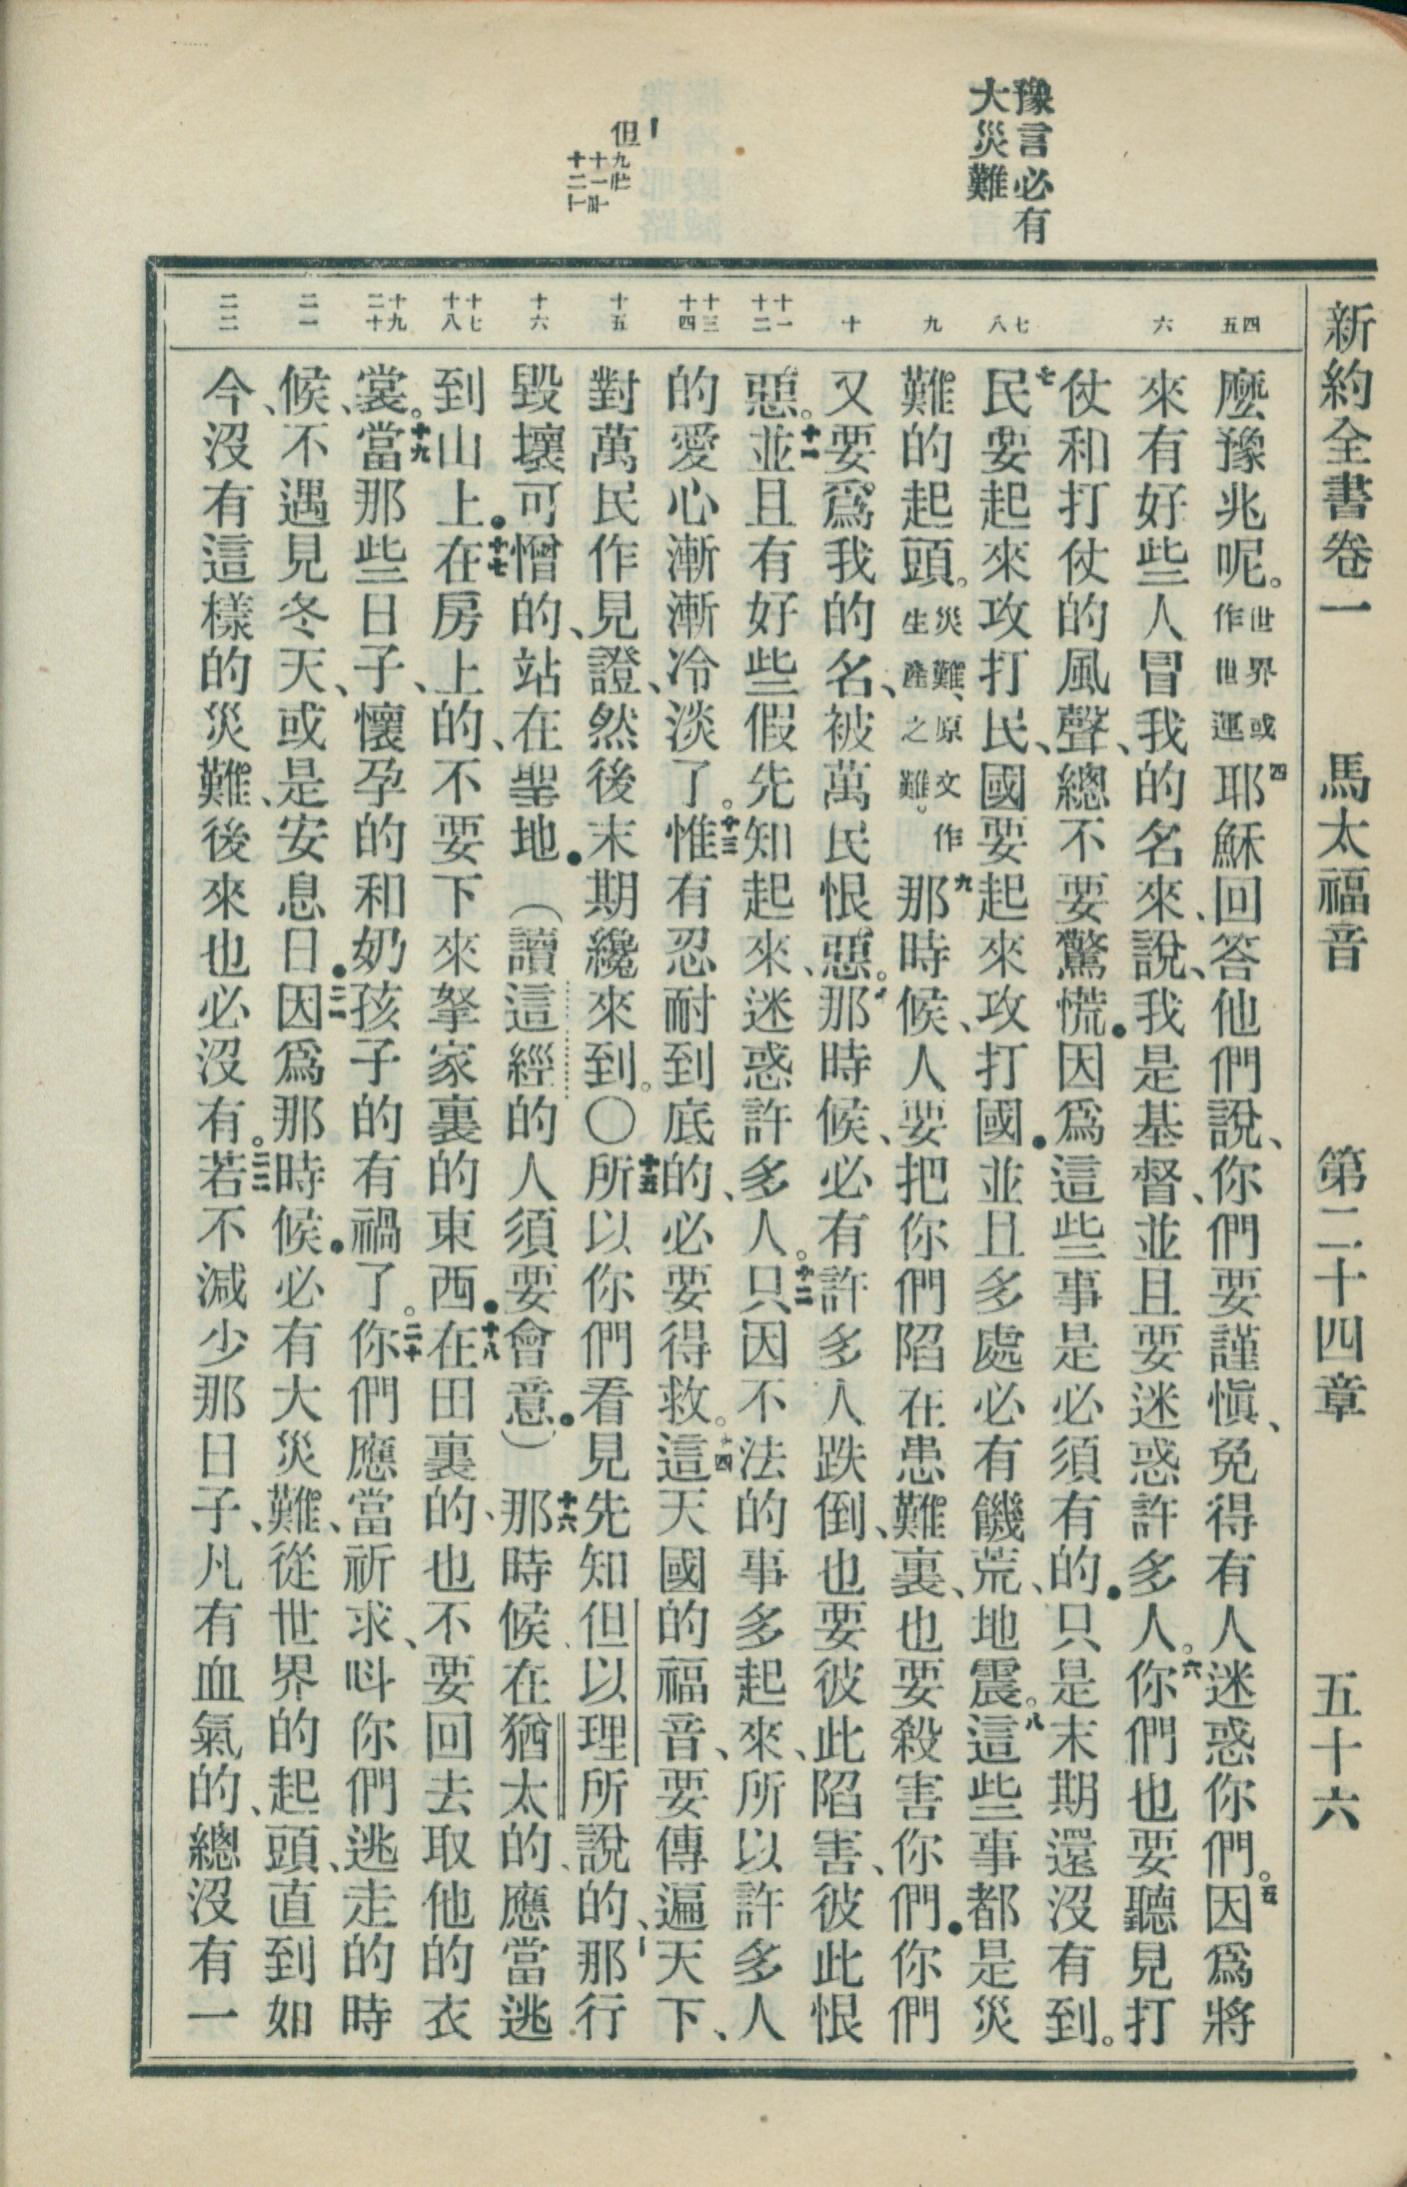 新約全書卷一 馬太福音 第二十四章 五十六
豫言必有
大災難
四五
六
七八
九
十
十一十二
十三十四
十五
十六
十七十八
十九二十
二一
二二
麼豫兆呢。世界或作世運四耶穌回答他們說、你們要謹愼、免得有人迷惑你們。五因爲將
來有好些人冒我的名來、說、我是基督、並且要迷惑許多人。六你們也要聽見打
仗和打仗的風聲、總不要驚慌.因爲這些事是必須有的.只是末期還沒有到。
七民要起來攻打民、國要起來攻打國.並且多處必有饑荒、地震。八這些事都是災
難的起頭。災難、原文作生產之難。九那時候、人要把你們陷在患難裏、也要殺害你們.你們
又要爲我的名、被萬民恨惡。十那時候、必有許多人跌倒、也要彼此陷害、彼此恨
惡。十一並且有好些假先知起來、迷惑許多人。十二只因不法的事多起來、所以許多人
的愛心漸漸冷淡了。十三惟有忍耐到底的、必要得救。十四這天國的福音、要傳遍天下、
對萬民作見證、然後末期纔來到。〇十五所以你們看見先知但以理所說的、那行
毀壞可憎的、站在聖地.(讀這經的人須要會意.)十六那時候、在猶太的、應當逃
到山上.十七在房上的、不要下來拏家裏的東西.十八在田裏的、也不要回去取他的衣
裳。十九當那些日子、懷孕的和奶孩子的有禍了。二十你們應當祈求、呌你們逃走的時
候、不遇見冬天、或是安息日.二一因爲那時候.必有大災難、從世界的起頭、直到如
今、沒有這樣的災難、後來也必沒有。二二若不減少那日子、凡有血氣的、總沒有一